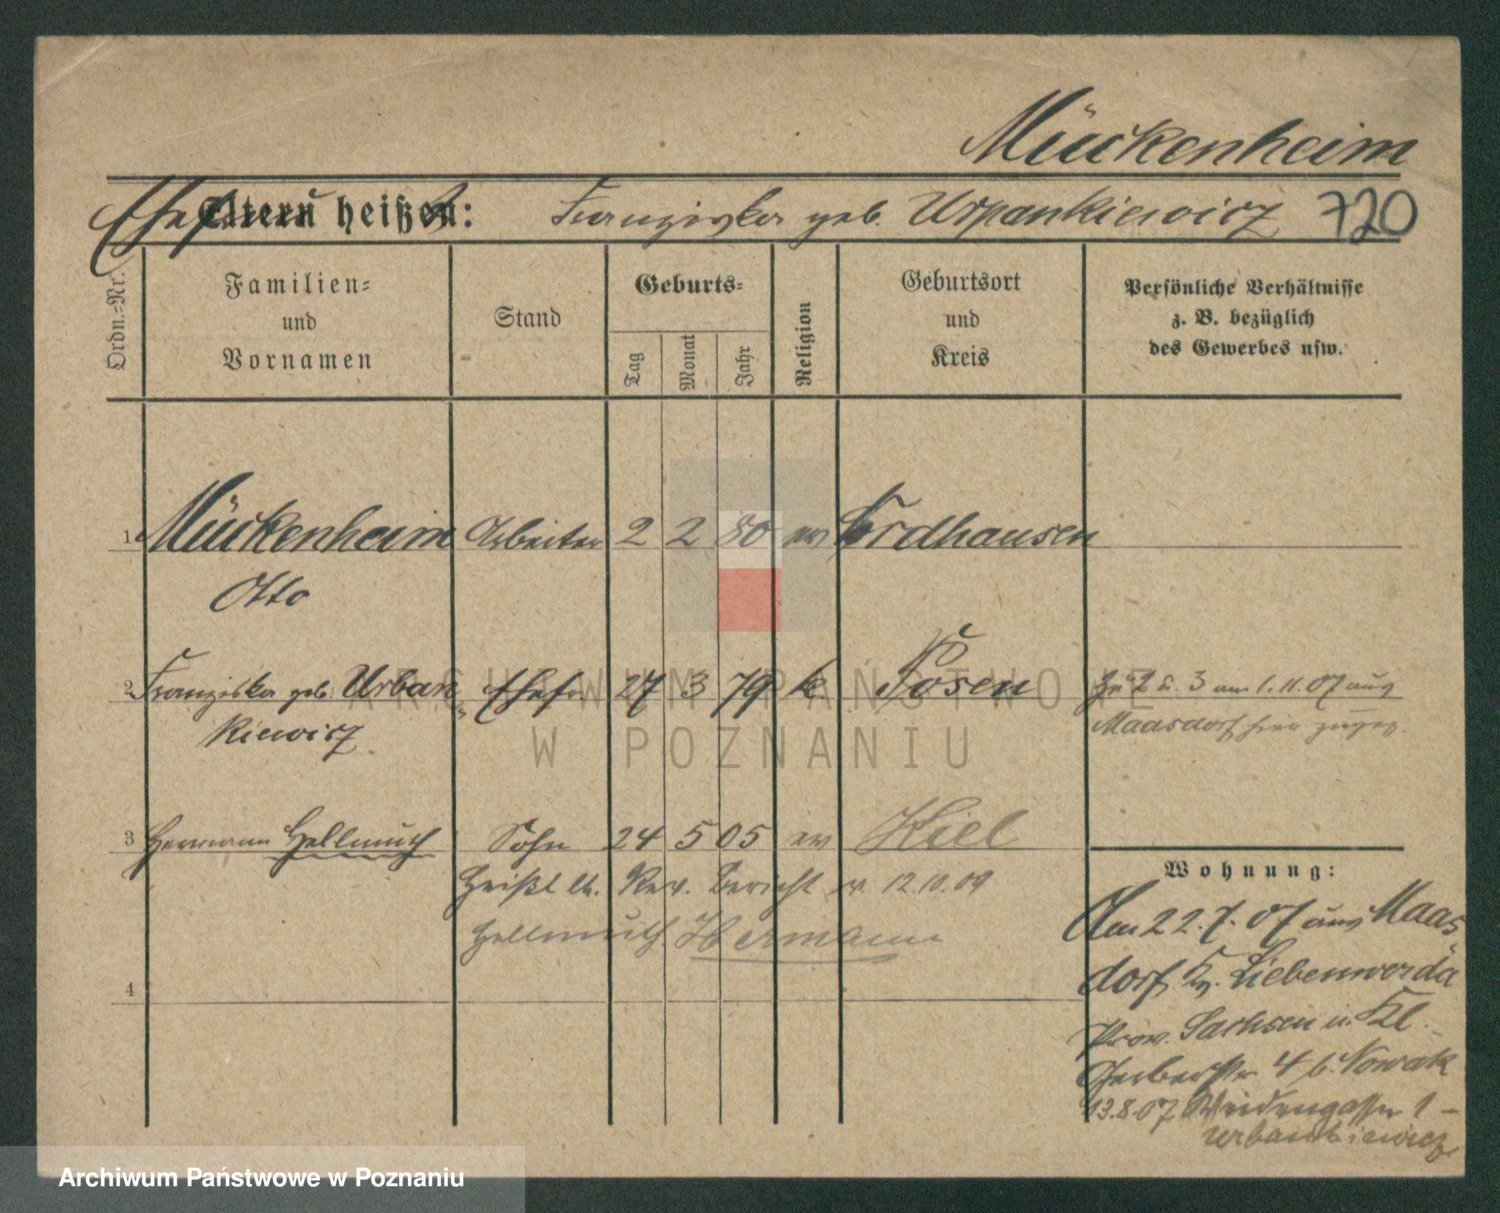 Mückenheim
Ehefrau
Eltern heißen: Franziska geb. Urpankiewicz 720
Ordn.-Nr.
Familien-
und
Vornamen
Stand
Geburts-
Tag
Monat
Jahr
Religion
Geburtsort
und
Kreis
Persönliche Verhältnisse
z. B. bezüglich
des Gewerbes usw.
1 Mückenheim Arbeiter 2 2 80 ev Nordhausen
Otto
2 Franziska geb. Urban Ehefr 27 3 79 k Posen Zu 2 u. 3 am 1.11.07 aus
kiewicz Maasdorf hier zugez.
3 Hermann Hellmuth Sohn 24 5 05 ev Kiel
heißt lt. Rev. Bericht v. 12.10.09
Hellmuth Hermann
4
Wohnung:
Am 22.7.07 aus Maas
dorf Kr. Liebenwerda
Prov. Sachsen in Kl.
Gerberstr 4 b. Nowak
13.8.07 Weidengasse 1 -
Urbankiewicz
ARCHIWUM PAŃSTWOWE
W POZNANIU
Archiwum Państwowe w Poznaniu